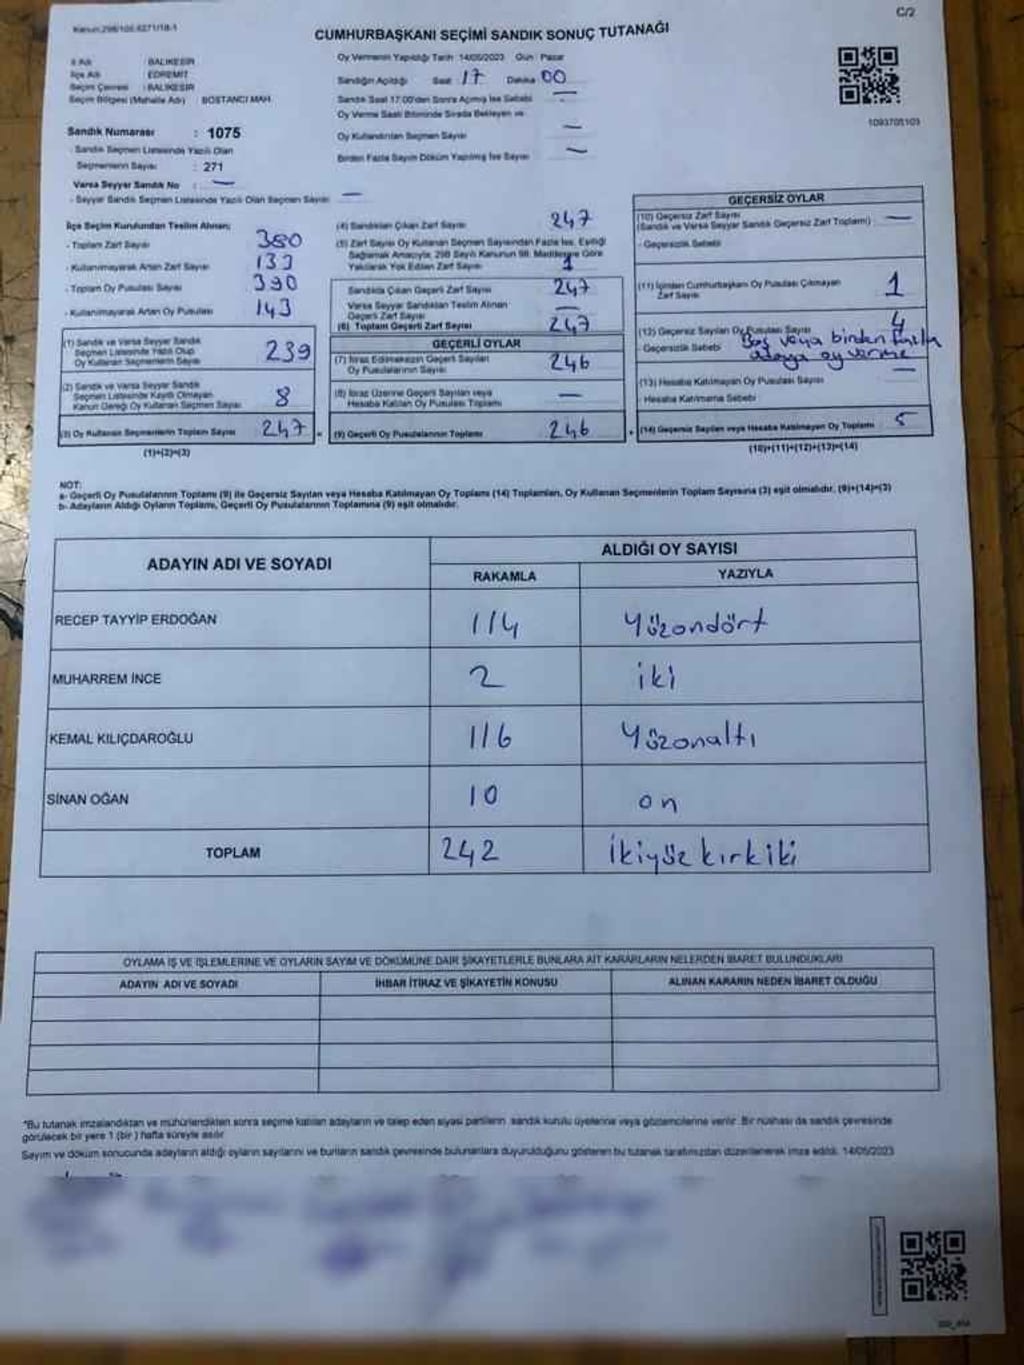 Kanun:298/105,6271/18-1
C/2
CUMHURBAŞKANI SEÇİMİ SANDIK SONUÇ TUTANAĞI
İl Adı : BALIKESİR
İlçe Adı : EDREMİT
Seçim Çevresi : BALIKESİR
Seçim Bölgesi (Mahalle Adı) BOSTANCI MAH.
Sandık Numarası : 1075
- Sandık Seçmen Listesinde Yazılı Olan
Seçmenlerin Sayısı : 271
Varsa Seyyar Sandık No : —
- Seyyar Sandık Seçmen Listesinde Yazılı Olan Seçmen Sayısı: —
Oy Vermenin Yapıldığı Tarih :14/05/2023 Gün : Pazar
Sandığın Açıldığı Saat : 17 Dakika 00
Sandık Saat 17:00'den Sonra Açılmış İse Sebebi —
Oy Verme Saati Bitiminde Sırada Bekleyen ve
Oy Kullandırılan Seçmen Sayısı —
Birden Fazla Sayım Döküm Yapılmış İse Sayısı —
1093705103
İlçe Seçim Kurulundan Teslim Alınan;
- Toplam Zarf Sayısı 380
- Kullanılmayarak Artan Zarf Sayısı 133
- Toplam Oy Pusulası Sayısı 390
- Kullanılmayarak Artan Oy Pusulası 143
(1) Sandık ve Varsa Seyyar Sandık
Seçmen Listesinde Yazılı Olup
Oy Kullanan Seçmenlerin Sayısı 239
(2) Sandık ve Varsa Seyyar Sandık
Seçmen Listesinde Kayıtlı Olmayan
Kanun Gereği Oy Kullanan Seçmen Sayısı 8
(3) Oy Kullanan Seçmenlerin Toplam Sayısı 247
(1)+(2)=(3)
(4) Sandıktan Çıkan Zarf Sayısı 247
(5) Zarf Sayısı Oy Kullanan Seçmen Sayısından Fazla İse, Eşitliği
Sağlamak Amacıyla, 298 Sayılı Kanunun 98. Maddesine Göre
Yakılarak Yok Edilen Zarf Sayısı 1
Sandıkta Çıkan Geçerli Zarf Sayısı 247
Varsa Seyyar Sandıktan Teslim Alınan
Geçerli Zarf Sayısı —
(6) Toplam Geçerli Zarf Sayısı 247
GEÇERLİ OYLAR
(7) İtiraz Edilmeksizin Geçerli Sayılan
Oy Pusulalarının Sayısı 246
(8) İtiraz Üzerine Geçerli Sayılan veya
Hesaba Katılan Oy Pusulası Toplamı —
(9) Geçerli Oy Pusulalarının Toplamı 246
GEÇERSİZ OYLAR
(10) Geçersiz Zarf Sayısı
(Sandık ve Varsa Seyyar Sandık Geçersiz Zarf Toplamı) —
- Geçersizlik Sebebi
(11) İçinden Cumhurbaşkanı Oy Pusulası Çıkmayan
Zarf Sayısı 1
(12) Geçersiz Sayılan Oy Pusulası Sayısı 4
- Geçersizlik Sebebi Boş veya birden fazla
adaya oy verme
(13) Hesaba Katılmayan Oy Pusulası Sayısı —
- Hesaba Katılmama Sebebi
(14) Geçersiz Sayılan veya Hesaba Katılmayan Oy Toplamı 5
(10)+(11)+(12)+(13)=(14)
NOT:
a- Geçerli Oy Pusulalarının Toplamı (9) ile Geçersiz Sayılan veya Hesaba Katılmayan Oy Toplamı (14) Toplamları, Oy Kullanan Seçmenlerin Toplam Sayısına (3) eşit olmalıdır. (9)+(14)=(3)
b- Adayların Aldığı Oyların Toplamı, Geçerli Oy Pusulalarının Toplamına (9) eşit olmalıdır.
ADAYIN ADI VE SOYADI
ALDIĞI OY SAYISI
RAKAMLA YAZIYLA
RECEP TAYYİP ERDOĞAN 114 Yüzondört
MUHARREM İNCE 2 iki
KEMAL KILIÇDAROĞLU 116 Yüzonaltı
SİNAN OĞAN 10 on
TOPLAM 242 İkiyüzkırkiki
OYLAMA İŞ VE İŞLEMLERİNE VE OYLARIN SAYIM VE DÖKÜMÜNE DAİR ŞİKAYETLERLE BUNLARA AİT KARARLARIN NELERDEN İBARET BULUNDUKLARI
ADAYIN ADI VE SOYADI İHBAR İTİRAZ VE ŞİKAYETİN KONUSU ALINAN KARARIN NEDEN İBARET OLDUĞU
*Bu tutanak imzalandıktan ve mühürlendikten sonra seçime katılan adayların ve talep eden siyasi partilerin sandık kurulu üyelerine veya gözlemcilerine verilir. Bir nüshası da sandık çevresinde
görülecek bir yere 1 (bir ) hafta süreyle asılır.
Sayım ve döküm sonucunda adayların aldığı oyların sayılarını ve bunların sandık çevresinde bulunanlara duyurulduğunu gösteren bu tutanak tarafımızdan düzenlenerek imza edildi. 14/05/2023